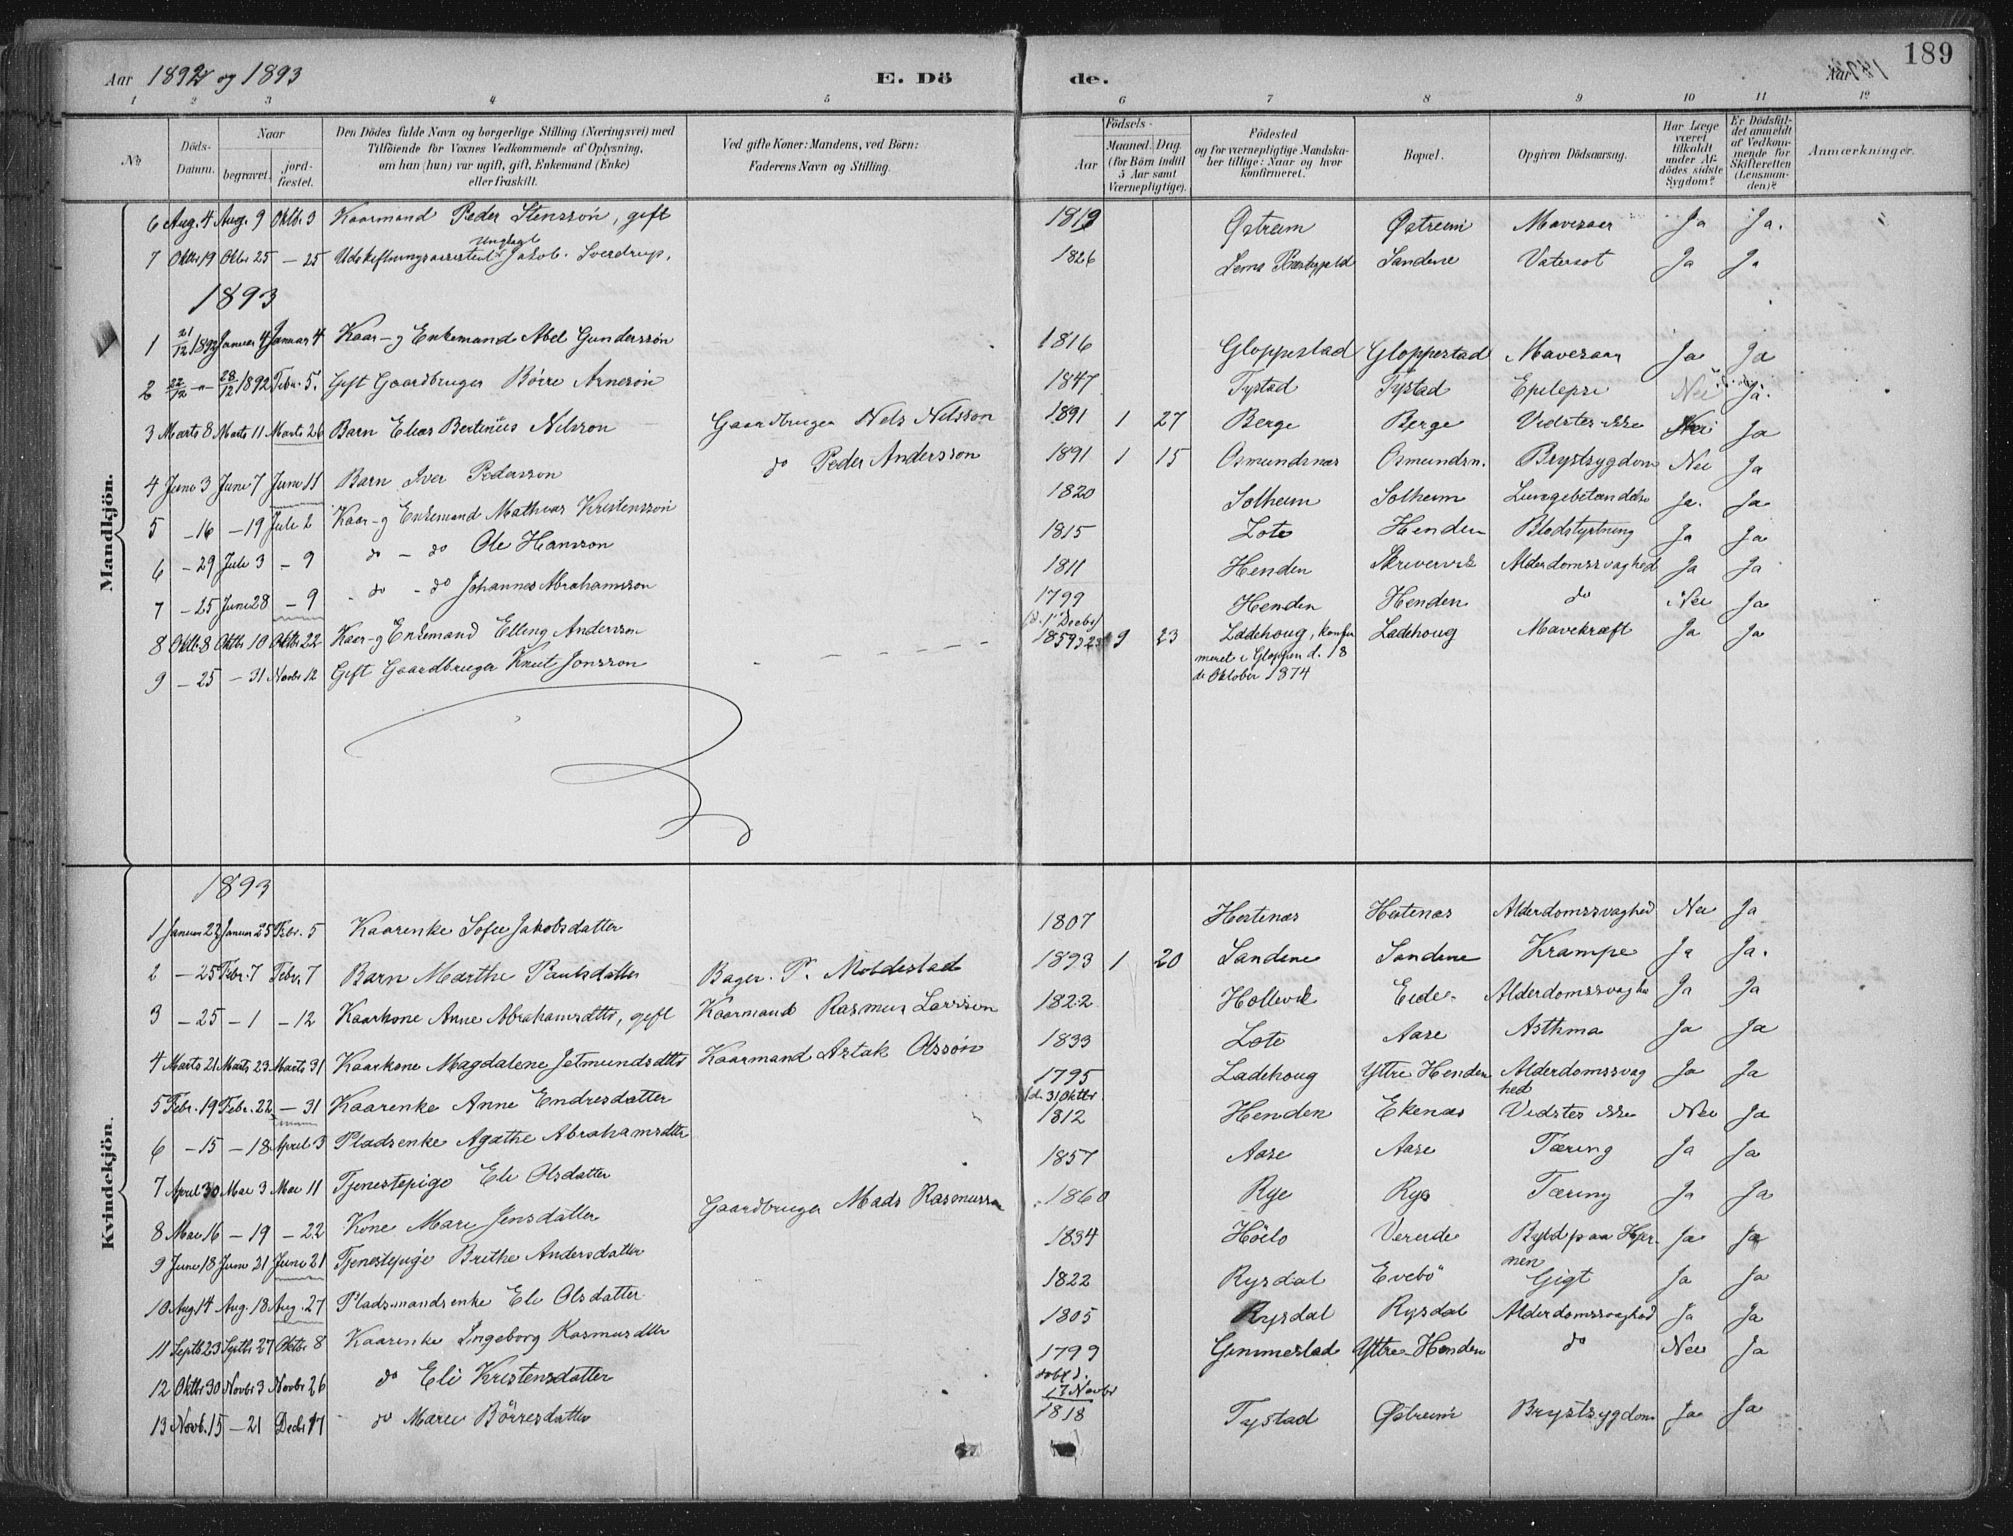 189
Aar 1892 og 1893 E. Döde. Aar
1 2 3 4 5 6 7 8 9 10 11 12
No
Döds-Datum.
Naar
begravet.
jordfæstet.
Den Dödes fulde Navn og borgerlige Stilling (Næringsvei) med
Tilföiende for Voxnes Vedkommende af Oplysning,
om han (hun) var ugift, gift, Enkemand (Enke)
eller fraskilt.
Ved gifte Koner: Mandens, ved Börn:
Faderens Navn og Stilling.
Födsels-
Aar
Maaned. Dag.
(for Börn indtil
5 Aar samt
Værnepligtige).
Födested
og for værnepligtige Mandska-
ber tillige: Naar og hvor
konfirmeret.
Bopæl.
Opgiven Dödsaarsag.
Har Læge
været
tilkaldt
under Af-
dödes sidste
Sygdom?
Er Dödsfal-
det anmeldt
af Vedkom-
mende for
Skifteretten
(Lensman-
den)?
Anmærkninger.
Mandkjön.
6 Aug. 4 Aug. 9 Oktbr. 3 Kaarmand Peder Stensson, gift 1819 Østreim Østreim Mavesaar Ja Ja.
7 Oktbr 19 Oktbr 25 – 25 Udskiftningsassistent Ungkarl Jakob Sverdrup, 1826 Lems Præstegjeld Sandene Vatersot Ja Ja
1893
1 21/12 1892 Januar 4 Januar 4 Kaar- og Enkemand Abel Gundersson 1816 Gloppestad Gloppestad Mavesaar Ja Ja
2 22/12 – 28/12 1892 Febr. 5. Gift Gaardbruger Börre Arneson 1847 Tystad Tystad Epilepsi Nei Ja.
3 Marts 8 Marts 11 Marts 26 Barn Elias Bertinus Nilsson Gaardbruger Nels Nilsson 1891 1 27 Berge Berge Vidstes ikke Nei Ja
4 Juni 3 Juni 7 Juni 11 Barn Iver Pedersson do Peder Andersson 1891 1 15 Osmundsnæs Osmundsn. Brystsygdom Nei Ja
5 – 16 – 19 Juli 2 Kaar- og Enkemand Mathias Kristensson 1820 Solheim Solheim Lungebetændelse Ja. Ja
6 – 29 Juli 3 – 9 do – do Ole Hansson 1815 Lote Henden Blodstyrtning Ja Ja
7 – 25 Juni 28 – 9 do – do Johannes Abrahamsson 1811 Henden Skrivervik Alderdomssvaghed Ja Ja
8 Oktbr 8 Oktbr 10 Oktbr 22 Kaar- og Enkemand Elling Andersson 1799 (d. 1 Decbr) Henden Henden do Nei Ja
9 – 25 – 31 Novbr 12 Gift Gaardbruger Knut Jonsson 1859 9 23 Ladehoug, konfir
meret i Gloppen d. 18
de Oktober 1874 Ladehoug Mavekræft Ja Ja
Kvindekjön.
1893
1 Januar 22 Januar 25 Febr. 5 Kaarenke Sofie Jakobsdatter 1807 Hestenæs Hestenæs Alderdomssvaghed Nei Ja
2 – 25 Febr. 7 Febr. 7 Barn Marthe Paulsdatter Bager P. Moldestad 1893 1 20 Sandene Sandene Krampe Ja Ja.
3 – 25 – 1 – 12 Kaarkone Anne Abrahamsdtr, gift Kaarmand Rasmus Larsson 1822 Hollevik Eide Alderdomssvaghe Ja Ja
4 Marts 21 Marts 23 Marts 31 Kaarkone Magdalene Jetmundsdtr Kaarmand Aslak Olsson 1833 Lote Aase Asthma Ja Ja
5 Febr. 19 Febr. 22 – 31 Kaarenke Anne Endresdatter 1795 (d. 31 Oktbr. Ladehoug Yttre Henden Alderdomssvag
hed Ja Ja
6 – 15 – 18 April 3 Pladsenke Agathe Abrahamsdtter 1812 Henden Ekenæs Vidstes ikke Nei Ja
7 April 30 Mai 3 Mai 11 Tjenestepige Eli Olsdatter 1857 Aase Aase Tæring Ja Ja
8 Mai 16 – 19 – 22 Kone Mari Jensdatter Gaardbruger Mads Rasmusson 1860 Rye Rye Tæring Ja Ja
9 Juni 18 Juni 21 Juni 21 Tjenestepige Brithe Andersdatter 1834 Höilo Vereide Byld paa Hjer
nen Ja Ja
10 Aug. 14 Aug. 18 Aug. 27 Pladsmandsenke Eli Olsdatter 1822 Rysdal Evebö Gigt Ja Ja
11 Septb 23 Septb 27 Oktbr 8 Kaarenke Ingeborg Rasmusdtter 1805 Rysdal Rysdal Alderdomssvaghed Ja Ja
12 Oktbr 30 Novbr 3 Novbr 26 do Eli Kristensdatter 1799
döbt d.
17 Novbr Gimmestad Yttre-Henden do Nei Ja
13 Novb. 15 – 21 Decbr 17 do Marie Börresdatter 1818 Tystad Østreim Brystsygdom Ja Ja